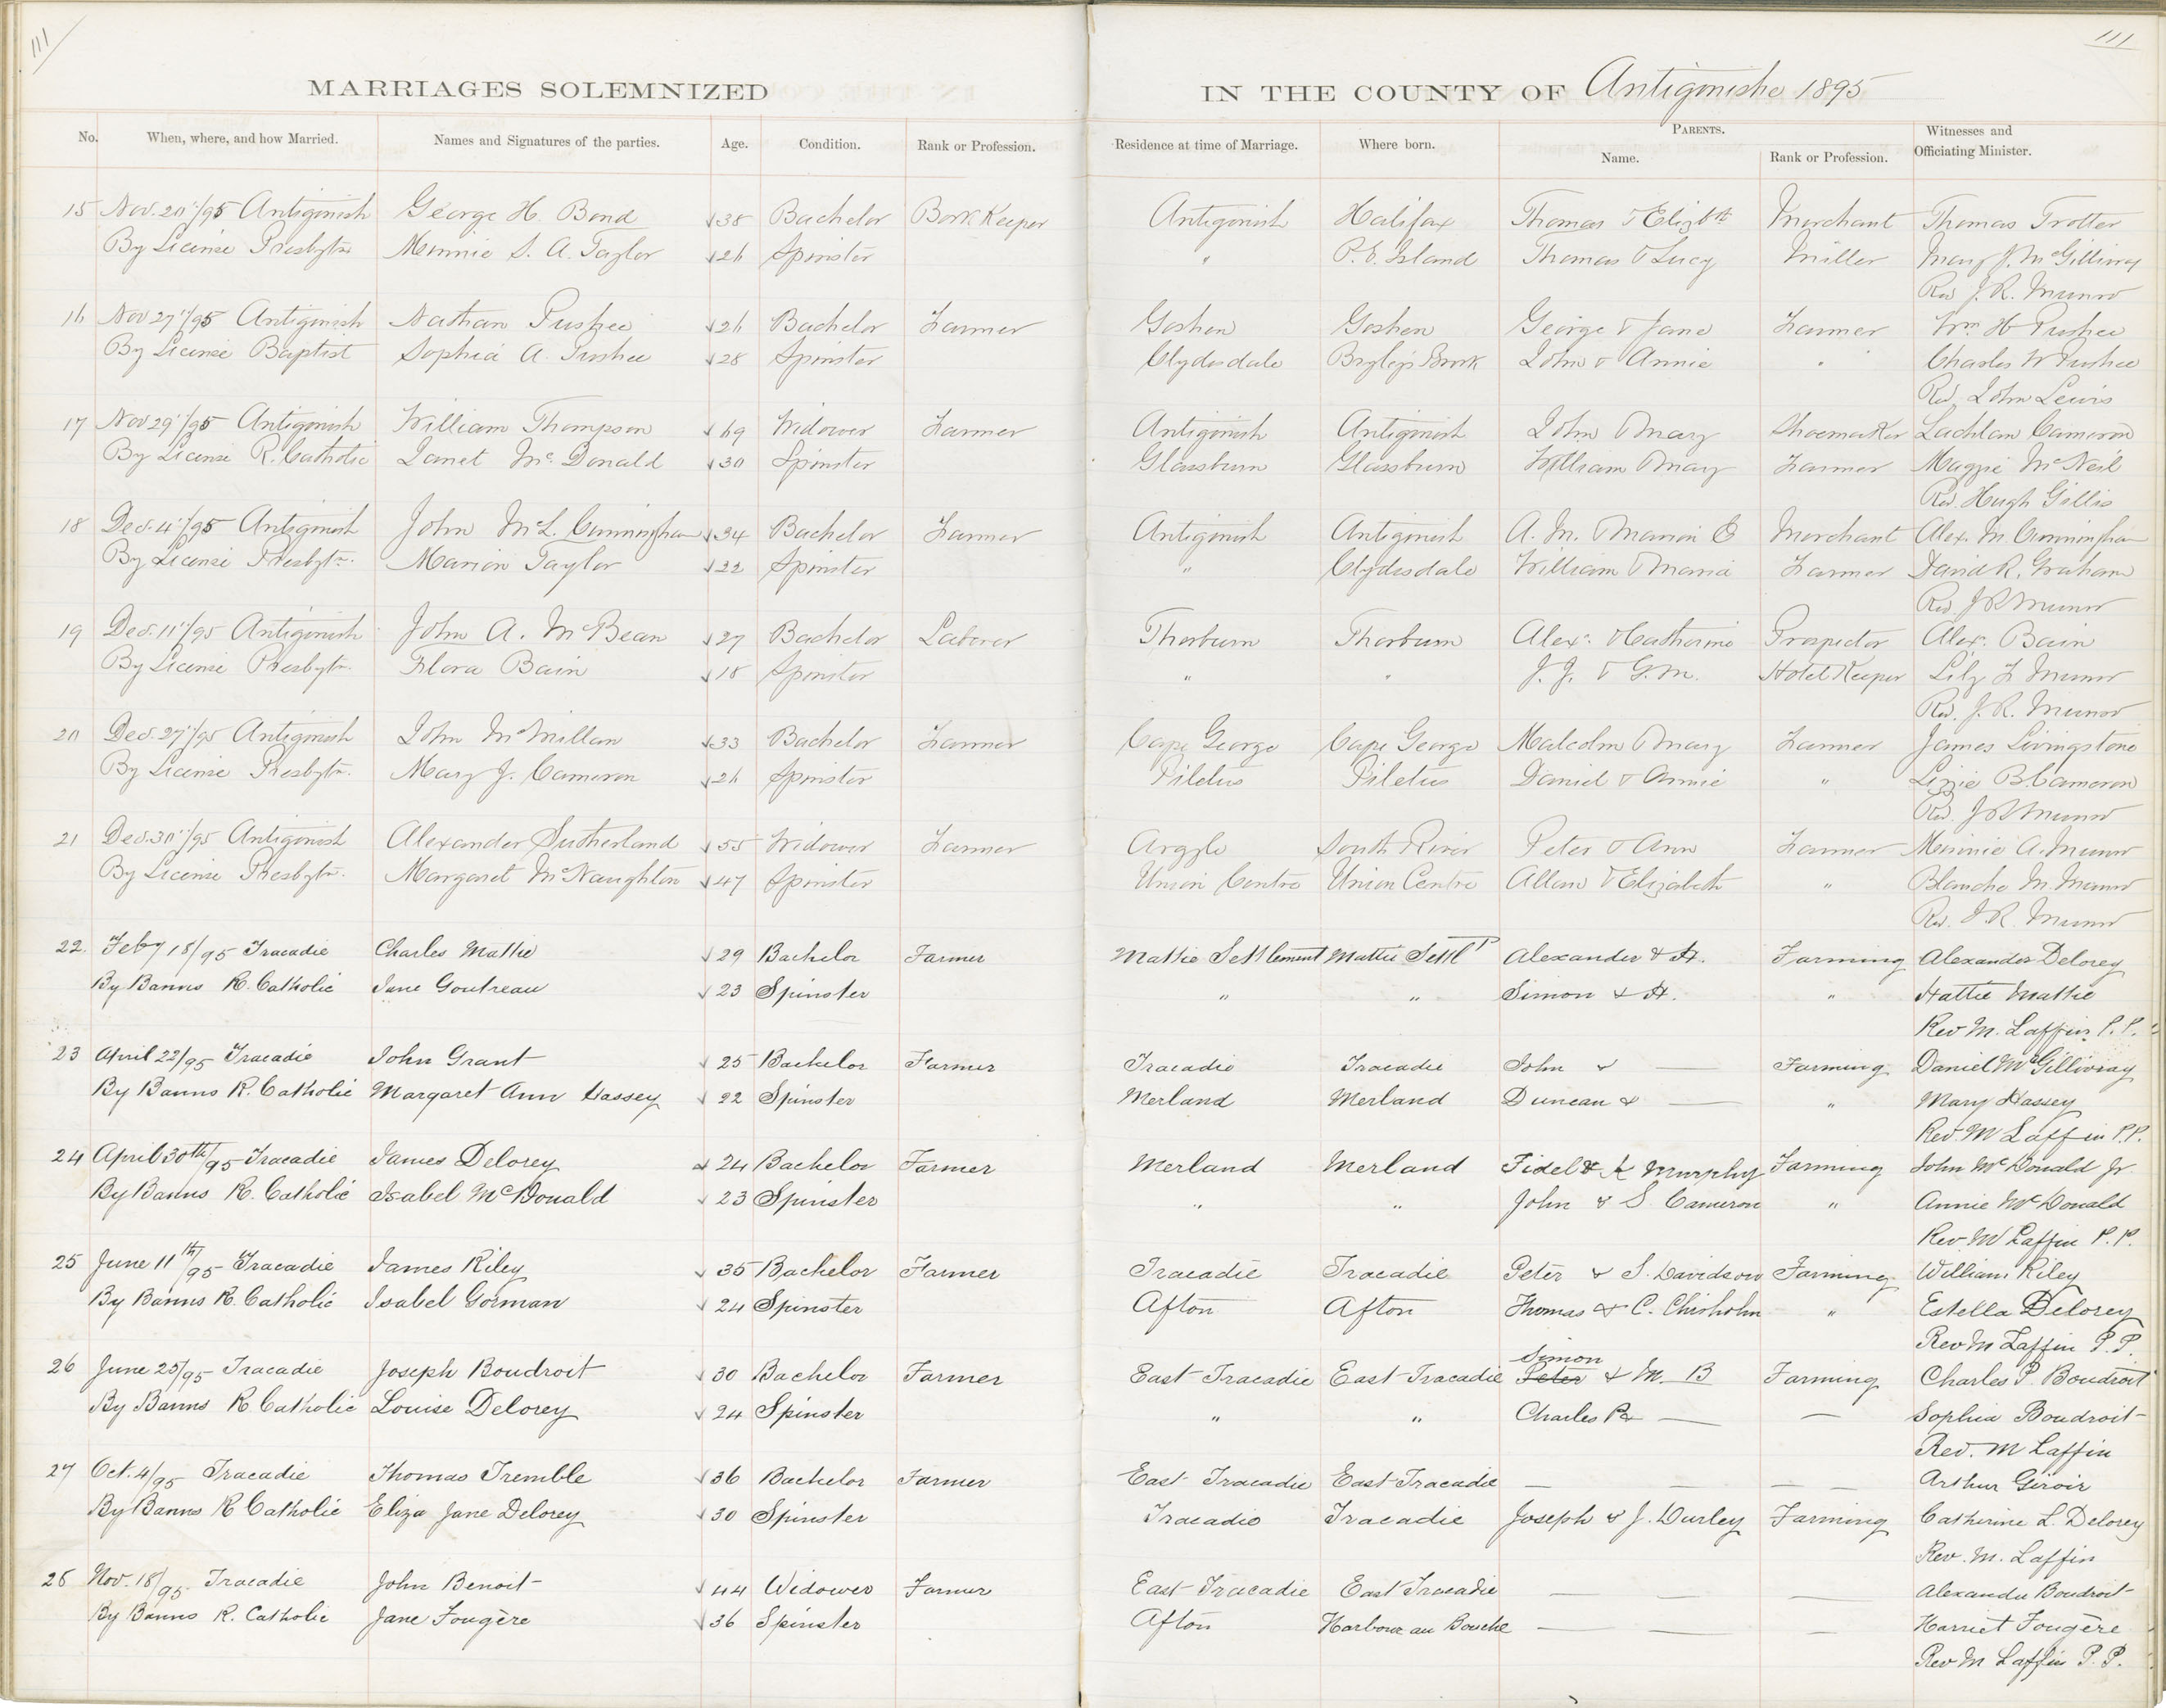 111
111
MARRIAGES SOLEMNIZED IN THE COUNTY OF Antigonishe 1895
No. When, where, and how Married. Names and Signatures of the parties. Age. Condition. Rank or Profession. Residence at time of Marriage. Where born. PARENTS. Name. Rank or Profession. Witnesses and Officiating Minister.
15 Nov. 20"/95 Antigonish George H. Bond 38 Bachelor Book Keeper Antigonish Halifax Thomas & Elizbth Merchant Thomas Trotter
By License Presbytn Minnie S. A. Taylor 26 Spinster " P. E. Island Thomas & Lucy Miller Mary J. McGillivray
Rev J. R. Munro
16 Nov 27"/95 Antigonish Nathan Pushee 26 Bachelor Farmer Goshen Goshen George & Jane Farmer Wm H Pushee
By License Baptist Sophia A. Pushee 28 Spinster Clydesdale Brook John & Annie " Charles W Pushee
Rev. John Lewis
17 Nov 29"/95 Antigonish William Thompson 69 Widower Farmer Antigonish Antigonish John & Mary Shoemaker Lachlan Cameron
By License R. Catholic Janet McDonald 30 Spinster Glassburn Glassburn William & Mary Farmer Maggie McNeil
Rev. Hugh Gillis
18 Dec. 4"/95 Antigonish John McL. Cunningham 34 Bachelor Farmer Antigonish Antigonish A. M. & Marion E Merchant Alex. M. Cunningham
By License Presbytn. Marion Taylor 22 Spinster " Clydesdale William & Maria Farmer David R. Graham
Rev. J R Munro
19 Dec. 11"/95 Antigonish John A. McBean 27 Bachelor Laborer Thorburn Thorburn Alexr. & Catherine Prospector Alexr. Bain
By License Presbytn. Flora Bain 18 Spinster " " J. J. & G. M. Hotel Keeper Lily F Munro
Rev. J. R. Munro
20 Dec. 27"/95 Antigonish John McMillan 33 Bachelor Farmer Cape George Cape George Malcolm & Mary Farmer James Livingstone
By License Presbytn. Mary J. Cameron 26 Spinster Piletus Piletus Daniel & Annie " Lizzie B. Cameron
Rev. J R Munro
21 Dec. 30"/95 Antigonish Alexander Sutherland 55 Widower Farmer Argyle South River Peter & Ann Farmer Minnie A. Munro
By License Presbytn. Margaret McNaughton 47 Spinster Union Centre Union Centre Allan & Elizabeth " Blanche M. Munro
Rev. J. R. Munro
22. Feby 18/95 Tracadie Charles Mattie 29 Bachelor Farmer Mattie Settlement Mattie Settlt Alexander & H. Farming Alexander Delorey
By Banns R. Catholic Jane Goutreau 23 Spinster " " Simon & H. " Hattie Mattie
Rev M. Laffin P.P.
23 April 22/95 Tracadie John Grant 25 Bachelor Farmer Tracadie Tracadie John & — Farming Daniel McGillivray
By Banns R. Catholic Margaret Ann Hassey 22 Spinster Merland Merland Duncan & — " Mary Hassey
Rev. M Laffin P.P.
24 April 30th/95 Tracadie James Delorey 24 Bachelor Farmer Merland Merland Fidel & A Murphy Farming John McDonald Jr.
By Banns R. Catholic Isabel McDonald 23 Spinster " " John & S. Cameron " Annie McDonald
Rev. M Laffin P.P.
25 June 11th/95 Tracadie James Riley 35 Bachelor Farmer Tracadie Tracadie Peter & S. Davidson Farming William Riley
By Banns R. Catholic Isabel Gorman 24 Spinster Afton Afton Thomas & C. Chisholm " Estella Delorey
Rev M Laffin P.P.
Simon
26 June 25/95 Tracadie Joseph Boudroit 30 Bachelor Farmer East Tracadie East Tracadie Peter & M. B Farming Charles P. Boudroit
By Banns R Catholic Louise Delorey 24 Spinster " " Charles P & — — Sophia Boudroit
Rev. M Laffin
27 Oct. 4/95 Tracadie Thomas Tremble 36 Bachelor Farmer East Tracadie East Tracadie — — — — Arthur Giroir
By Banns R Catholic Eliza Jane Delorey 30 Spinster Tracadie Tracadie Joseph & J. Durley Farming Catherine L. Delorey
Rev. M. Laffin
28 Nov. 18/95 Tracadie John Benoit 44 Widower Farmer East Tracadie East Tracadie — — — Alexander Boudroit
By Banns R. Catholic Jane Fougère 36 Spinster Afton Harbour au Bouche — — — Harriet Fougère
Rev M Laffin P.P.